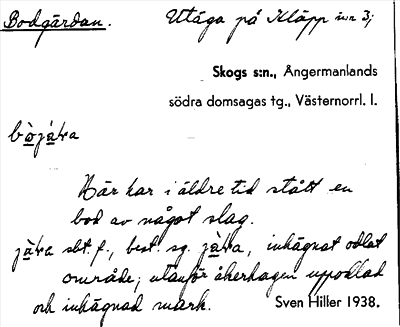 Bodgärdan. Utäga på Kläpp nr 3;
Skogs s:n., Ångermanlands
södra domsagas tg., Västernorrl. l.
Här har i äldre tid stått en
bod av något slag.
sbt. f., best. sg. inhägnat odlat
område; utanför åkerhagen uppodlad
och inhägnad mark. Sven Hiller 1938.